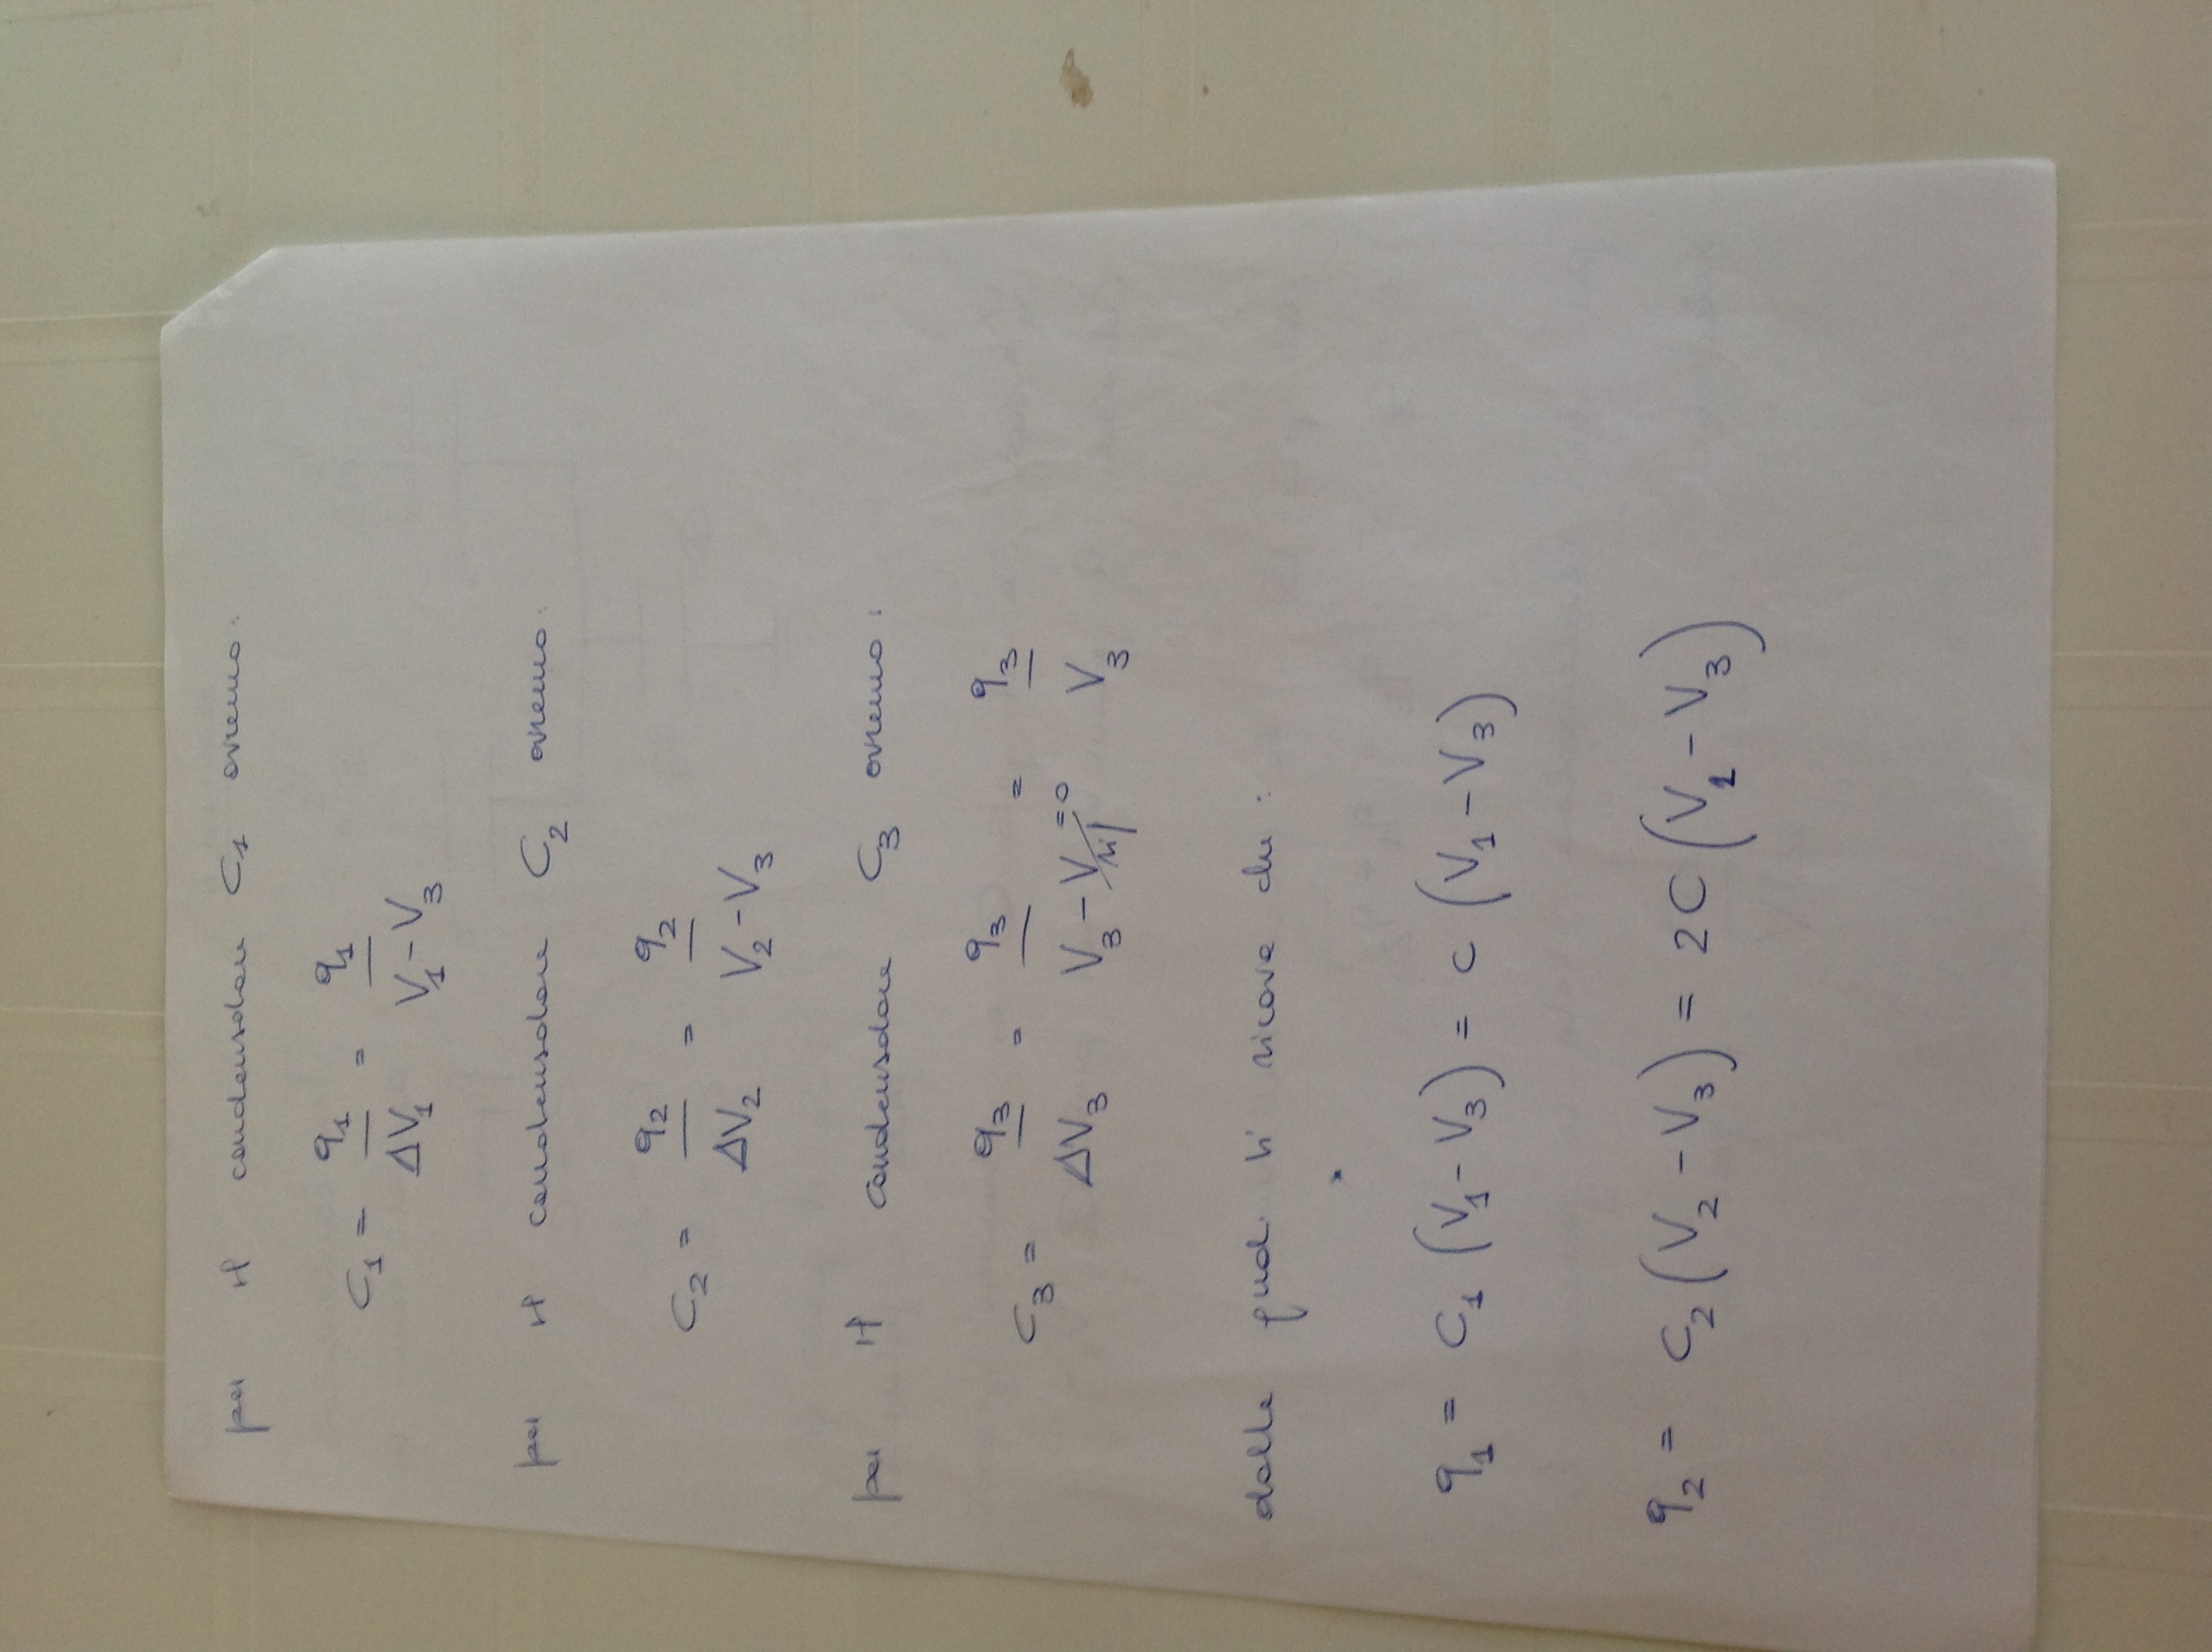 per il condensatore C1 avremo:
C1 = q1/ΔV1 = q1/(V1-V3)
per il condensatore C2 avremo:
C2 = q2/ΔV2 = q2/(V2-V3)
per il condensatore C3 avremo:
C3 = q3/ΔV3 = q3/(V3-Vrif=0) = q3/V3
dalle quali si ricava che:
q1 = C1 (V1-V3) = C (V1-V3)
q2 = C2 (V2-V3) = 2C (V2-V3)